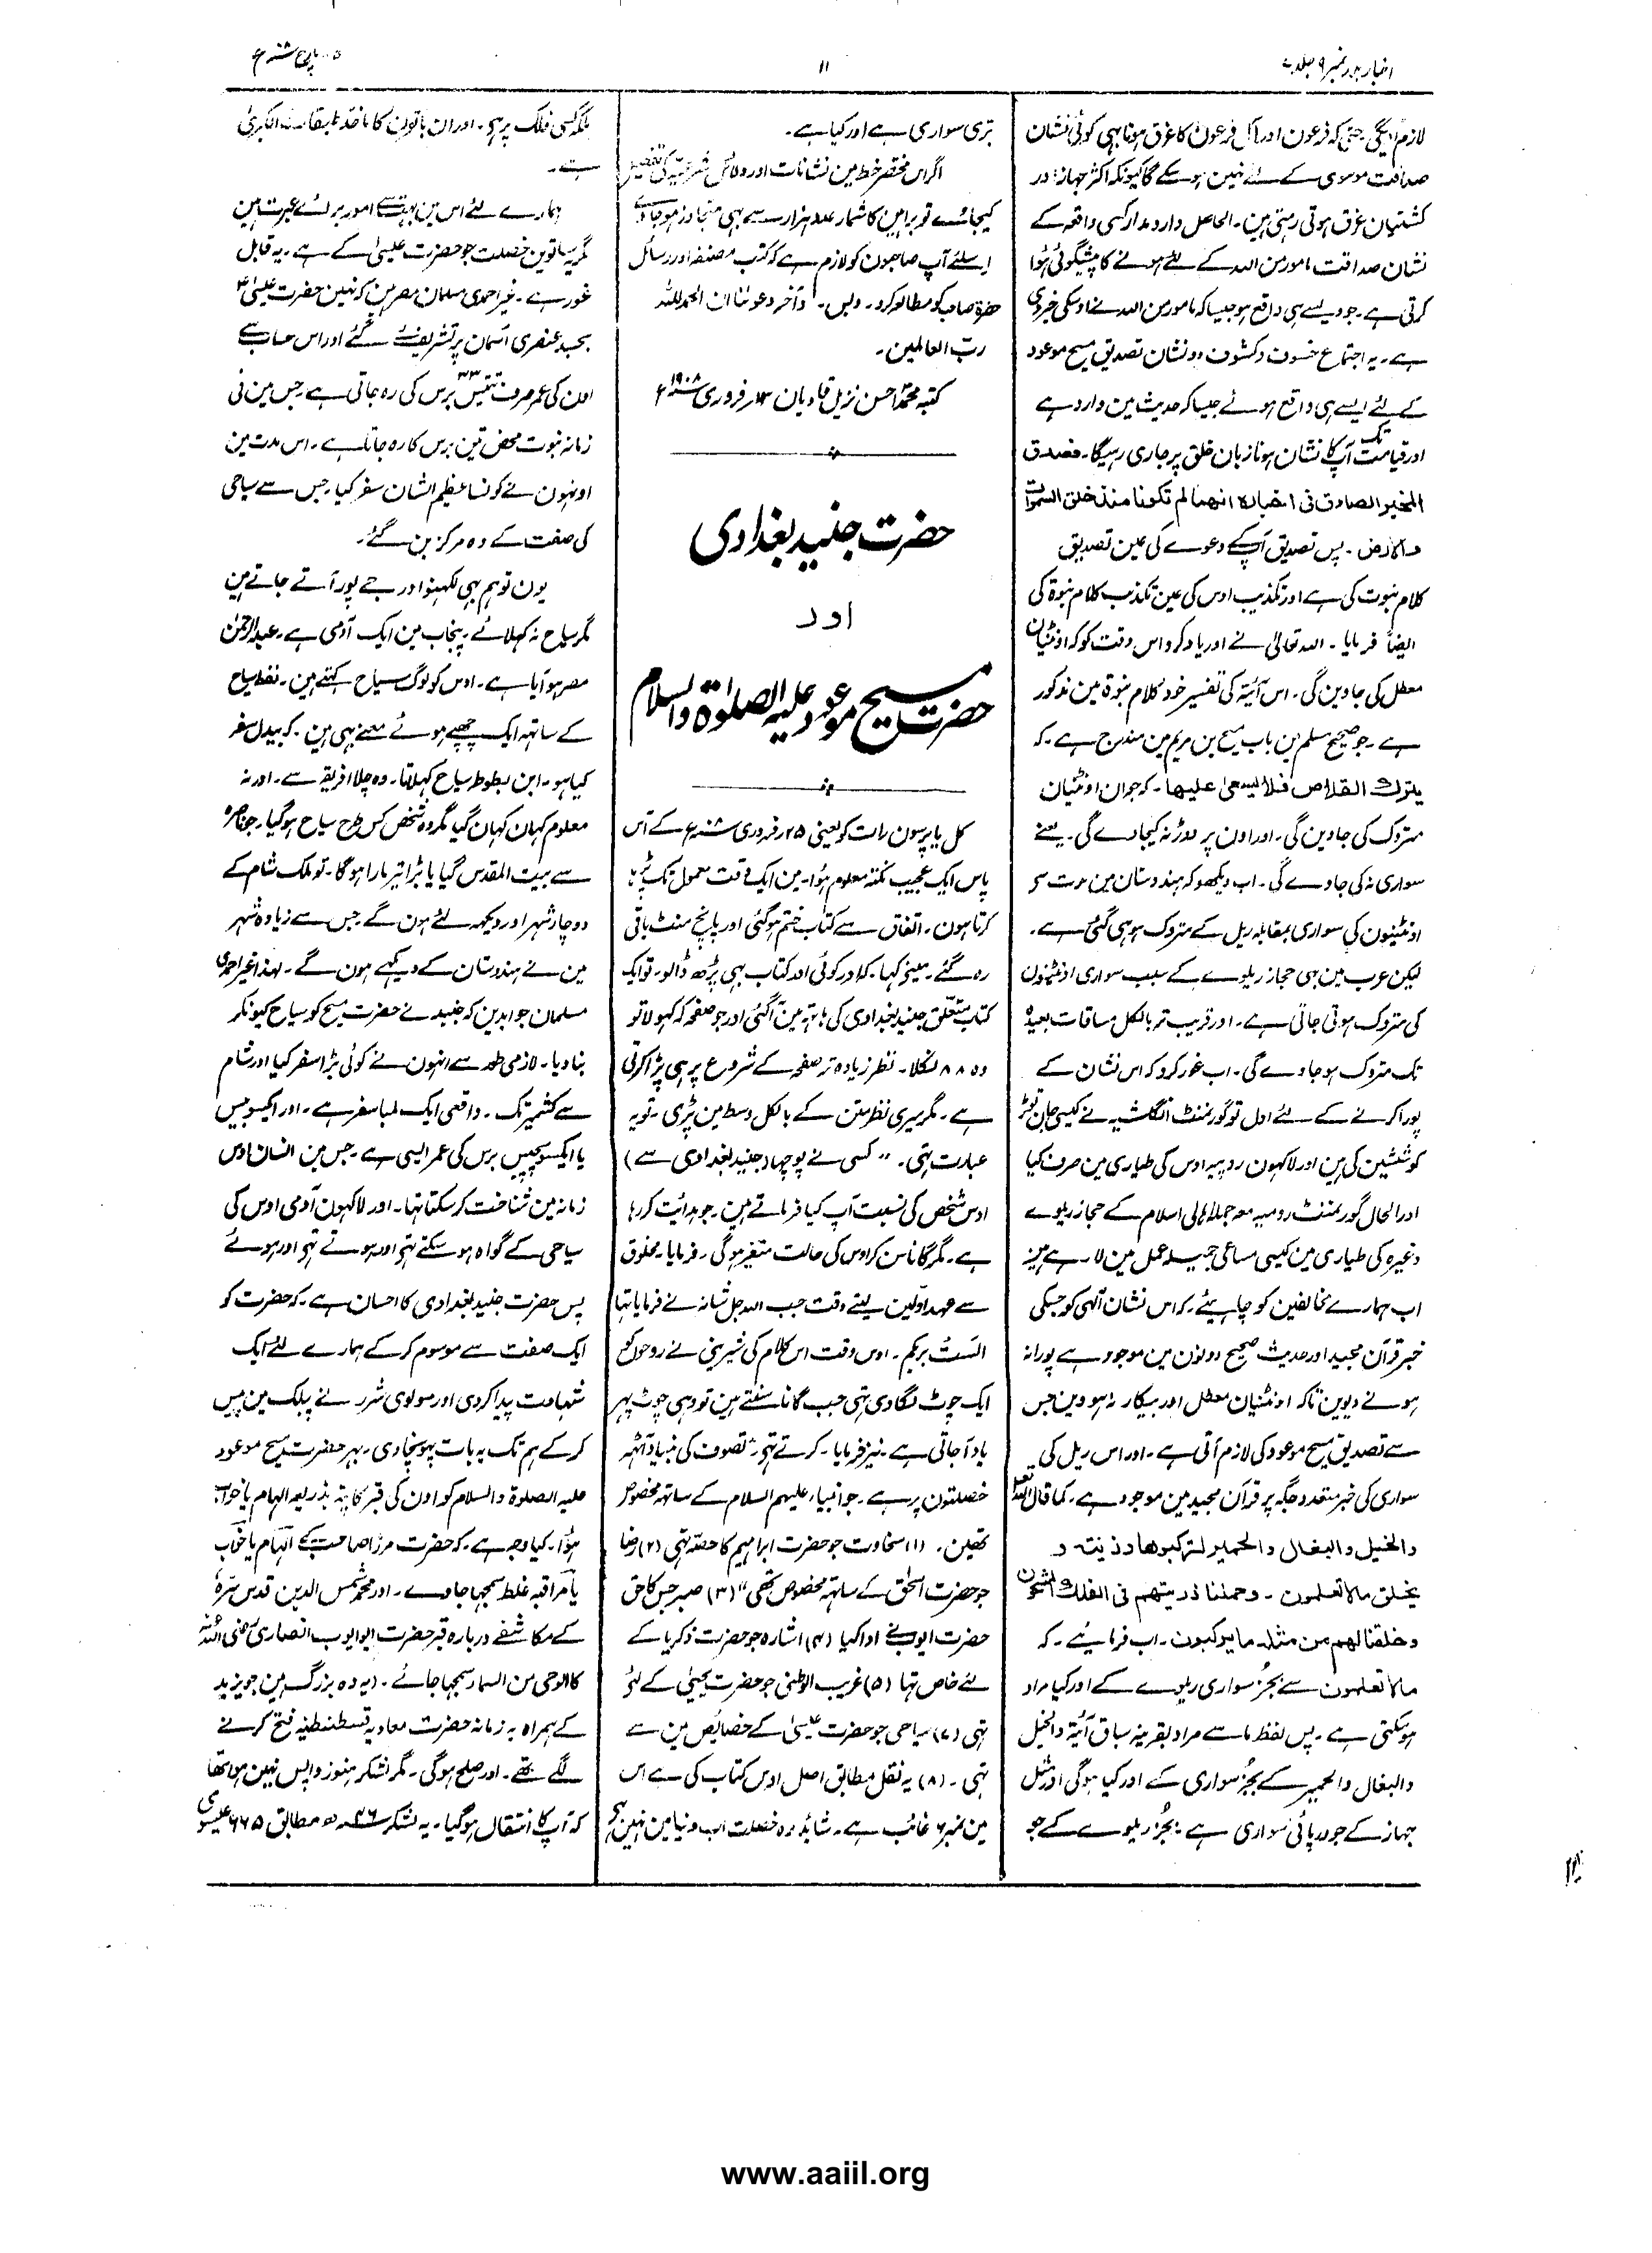 اخبار بدر نمبر ۹ جلد ۷
۱۱
۵ مارچ ۱۹۰۸ء
لازم آئیگی۔ حتی کہ فرعون اور آل فرعون کا غرق ہونا بہی کوئی نشان
صداقت موسوی کے لئے نہین ہو سکے گا کیونکہ اکثر جہاز اور
کشتیان غرق ہوتی رہتی ہین۔ الحاصل دارومدار کسی واقعہ کے
نشان صداقت مامور من اللہ کے لئے ہونے کا پیشگوئی ہوا
کرتی ہے۔ جو ویسے ہی واقع ہو جیسا کہ مامور من اللہ نے اوسکی خبر دی
ہے۔ یہ اجتماع خسوف و کسوف دو نشان تصدیق مسیح موعود
کے لئے ایسے ہی واقع ہوئے جیسا کہ حدیث مین وارد ہے
اور قیامت تک آپ کا نشان ہونا زبان خلق پر جاری رہیگا۔ فصدق
المخبر الصادق فی اخبارہ انہما لم تکونا منذ خلق السموات
والارض۔ پس تصدیق آپکے دعوے کی عین تصدیق
کلام نبوت کی ہے اور تکذیب اوس کی عین تکذیب کلام نبوۃ کی
ایضاً فرمایا۔ اللہ تعالیٰ نے اور یاد کرو اس وقت کو کہ اونٹنیان
معطل کی جاوین گی۔ اس آئیۃ کی تفسیر خود کلام نبوۃ مین مذکور
ہے۔ جو صحیح مسلم مین باب مسیح بن مریم مین مندرج ہے۔ کہ
یترک القلاص فلا یسعیٰ علیہا۔ کہ جوان اونٹنیان
متروک کی جاوین گی۔ اور اون پر دوڑ نہ کیجاوے گی۔ یعنے
سواری نہ کی جاوے گی۔ اب دیکھو کہ ہندوستان مین مدت سے
اونٹنیون کی سواری بمقابلہ ریل کے متروک ہو ہی گئی ہے۔
لیکن عرب مین بہی حجاز ریلوے کے سبب سواری اونٹنیون
کی متروک ہوتی جاتی ہے۔ اور قریب تر بالکل مسافات بعیدہ
تک متروک ہو جاوے گی۔ اب غور کرو کہ اس نشان کے
پورا کرنے کے لئے اول تو گورنمنٹ انگلشیہ نے کیسی جان توڑ
کوششین کی ہین اور لاکھون روپیہ اوس کی طیاری مین صرف کیا
اور الحال گورنمنٹ رومیہ معہ جملہ اہالی اسلام کے حجاز ریلوے
وغیرہ کی طیاری مین کیسی مساعی جمیلہ عمل مین لا رہے ہین
اب ہمارے مخالفین کو چاہیئے۔ کہ اس نشان الٰہی کو جسکی
خبر قرآن مجید اور حدیث صحیح دونون مین موجود ہے پورا نہ
ہونے دیوین تاکہ اونٹنیان معطل اور بیکار نہ ہووین جس
سے تصدیق مسیح موعود کی لازم آتی ہے۔ اور اس ریل کی
سواری کی خبر متعدد جگہ پر قرآن مجید مین موجود ہے۔ کما قال اللہ تعالیٰ
والخیل والبغال والحمیر لترکبوھا وزینۃ و
یخلق مالا تعلمون۔ وحملنا ذریتھم فی الفلک المشحون
وخلقنا لھم من مثلہ ما یرکبون۔ اب فرمائیے۔ کہ
مالا تعلمون سے بجز سواری ریلوے کے اور کیا مراد
ہو سکتی ہے۔ پس لفظ ما سے مراد بقرینہ سباق آیۃ والخیل
والبغال والحمیر کے بجز سواری کے اور کیا ہوگی اور مثل
جہاز کے جو دریائی سواری ہے۔ بجز ریلوے کے جو
بری سواری ہے اور کیا ہے۔
اگر اس مختصر خط مین نشانات اور دلائل شرعیہ کی تفصیل
کیجائے تو براہین کا شمار عدد ہزار سے بہی متجاوز ہو جاوے
اسلئے آپ صاحبون کو لازم ہے کہ کتب مصنفہ اور رسائل
حضرۃ صاحب کو مطالعہ کرو۔ وبس۔ وآخر دعوٰنا ان الحمدللہ
ربّ العالمین۔
کتبہ محمد احسن نزیل قادیان ۱۳ فروری ۱۹۰۸ء
حضرت جنید بغدادی
اور
حضرت مسیح موعود علیہ الصلوٰۃ والسلام
کل یا پرسون رات کو یعنی ۲۵ فروری ۱۹۰۸ء کے آس
پاس ایک عجیب نکتہ معلوم ہوا۔ مین ایک وقت معمول تک پڑہا
کرتا ہون۔ اتفاق سے کتاب ختم ہو گئی اور پانچ منٹ باقی
رہ گئے۔ مینے کہا۔ کہ اور کوئی اور کتاب بہی پڑھ ڈالو۔ تو ایک
کتاب متعلق جنید بغدادی کی ہاتہ مین آگئی اور جو صفحہ کہ کھولا تو
وہ ۸۸ نکلا۔ نظر زیادہ تر صفحہ کے شروع پر ہی پڑا کرتی
ہے۔ مگر میری نظر متن کے بالکل وسط مین پڑی۔ تو یہ
عبارت تہی۔ ”کسی نے پوچہا (جنید بغدادی سے)
اوس شخص کی نسبت آپ کیا فرماتے ہین۔ جو ہدائت کر رہا
ہے۔ مگر گانا سن کر اوس کی حالت متغیر ہوگی۔ فرمایا۔ مخلوق
سے عہد اوّلین لیتے وقت جب اللہ جل شانہ نے فرمایا تہا
الستُ بربکم۔ اوس وقت اس کلام کی شیرینی نے روحون کو
ایک چوٹ لگا دی تہی جب گانا سنتے ہین تو وہی چوٹ پہر
یاد آجاتی ہے۔ نیز فرمایا۔ کرتے تہے ”تصوف کی بنیاد آٹہہ
خصلتون پر ہے۔ جو انبیاء علیہم السلام کے ساتہہ مخصوص
تھین۔ (۱) سخاوت جو حضرت ابراہیم کا حصّہ تہی (۲) رضا
جو حضرت اسحٰق کے ساتہہ مخصوص تھی“ (۳) صبر جس کا حق
حضرت ایوب نے ادا کیا (۴) اشارہ جو حضرت زکریا کے
لئے خاص تہا (۵) غریب الوطنی جو حضرت یحییٰ کے لئے
تہی (۷) سیاحی جو حضرت عیسیٰ کے خصائص مین سے
تہی۔ (۸) یہ نقل مطابق اصل اوس کتاب کی ہے اس
مین نمبر ۶ غائب ہے۔ شائد وہ خصلت اب دنیا مین نہین ہے
بلکہ کسی فلک پر ہی۔ اور ان باتون کا ماخذ طبقات الکبریٰ
ہے۔
ہمارے لئے اس مین بہت سے امور برائے عبرت ہین
مگر یہ ساتوین خصلت جو حضرت عیسیٰ کے ہے۔ یہ قابل
غور ہے۔ غیر احمدی مسلمان مصر ہین کہ نہین حضرت عیسیٰؑ
بجسد عنصری آسمان پر تشریف لے گئے اور اس حساب سے
اون کی عمر صرف تینتیس ۳۳ برس کی رہ جاتی ہے۔ جس مین نی
زمانہ نبوت محض تین برس کا رہ جاتا ہے۔ اس مدت مین
اونہون نے کونسا عظیم الشان سفر کیا۔ جس سے سیاحی
کی صفت کے وہ مرکز بن گئے۔
یون تو ہم بہی لکہنؤ اور جے پور آتے جاتے ہین
مگر سیاح نہ کہلائے۔ پنجاب مین ایک آدمی ہے۔ عبدالرحمٰن
مصر ہو آیا ہے۔ اوس کو لوگ سیاح کہتے ہین۔ لفظ سیاح
کے ساتہہ ایک چھپے ہوئے معنے بہی ہین۔ کہ پیدل سفر
کیا ہو۔ ابن بطوطہ سیاح کہلاتا۔ وہ چلا افریقہ سے۔ اور نہ
معلوم کہان کہان گیا مگر وہ شخص کس طرح سیاح ہو گیا۔ جو ناصرہ
سے بیت المقدس گیا یا بڑا تیر مارا ہوگا۔ تو ملک شام کے
دو چار شہر اور دیکہہ لئے ہون گے۔ جس سے زیادہ شہر
مین نے ہندوستان کے دیکہے ہون گے۔ لہذا غیر احمدی
مسلمان جواب دین کہ جنید نے حضرت مسیح کو سیاح کیونکر
بنا دیا۔ لازمی طور سے انہون نے کوئی بڑا سفر کیا اور شام
سے کشمیر تک۔ واقعی ایک لمبا سفر ہے۔ اور ایکسو بیس
یا ایکسو پچیس برس کی عمر ایسی ہے۔ جس مین انسان اوس
زمانہ مین شناخت کر سکتا تہا۔ اور لاکھون آدمی اوس کی
سیاحی کے گواہ ہو سکتے تہے اور ہوتے تہے اور ہوئے
پس حضرت جنید بغدادی کا احسان ہے۔ کہ حضرت کو
ایک صفت سے موسوم کر کے ہمارے لئے ایک
شہادت پیدا کر دی اور مولوی شرر نے پبلک مین پیش
کر کے ہم تک یہ بات پہونچا دی۔ پہر حضرت مسیح موعود
علیہ الصلوۃ والسلام کو اون کی قبر کا پتہ بذریعہ الہام یا خواب
ہوا۔ کیا وجہ ہے۔ کہ حضرت مرزا صاحب کے الہام یا خواب
یا مراقبہ غلط سمجہا جاوے۔ اور محمد شمس الدین قدس سرہ
کے مکاشفے دربارہ قبر حضرت ابو ایوب انصاری رضی اللہ
کالوحی من السماء سمجہا جائے۔ (یہ وہ بزرگ ہین جو یزید
کے ہمراہ بہ زمانہ حضرت معاویہ قسطنطنیہ فتح کرنے
گئے تھے۔ اور صلح ہوگی۔ مگر لشکر ہنوز واپس نہین ہوا تھا
کہ آپ کا انتقال ہو گیا۔ یہ لشکر ۴۶ھ مطابق ۶۶۵ عیسوی
www.aaiil.org